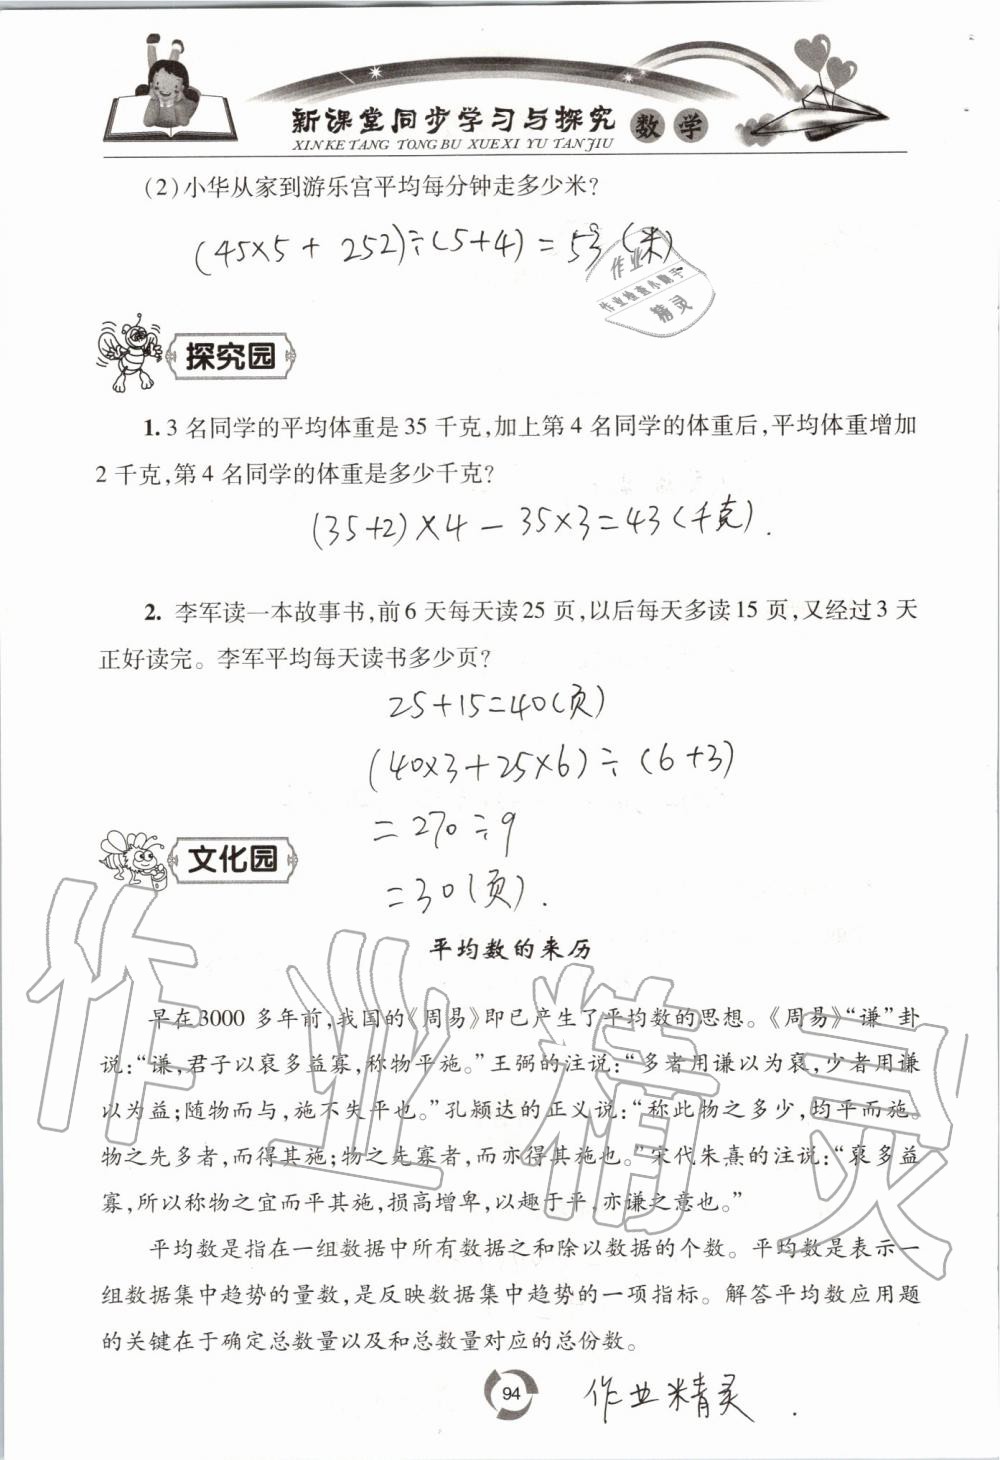 新课堂同步学习与探究 数学
XIN KE TANG TONG BU XUE XI YU TAN JIU
(2)小华从家到游乐宫平均每分钟走多少米?
(45×5+252)÷(5+4)=53(米)
作业
作业检查小助手
精灵
探究园
1. 3名同学的平均体重是35千克,加上第4名同学的体重后,平均体重增加
2千克,第4名同学的体重是多少千克?
(35+2)×4-35×3=43(千克).
2. 李军读一本故事书,前6天每天读25页,以后每天多读15页,又经过3天
正好读完。李军平均每天读书多少页?
25+15=40(页)
(40×3+25×6)÷(6+3)
=270÷9
=30(页).
文化园
平均数的来历
早在3000多年前,我国的《周易》即已产生了平均数的思想。《周易》“谦”卦
说:“谦,君子以裒多益寡,称物平施。”王弼的注说:“多者用谦以为裒,少者用谦
以为益;随物而与,施不失平也。”孔颖达的正义说:“称此物之多少,均平而施。
物之先多者,而得其施;物之先寡者,而亦得其施也。”宋代朱熹的注说:“裒多益
寡,所以称物之宜而平其施,损高增卑,以趣于平,亦谦之意也。”
平均数是指在一组数据中所有数据之和除以数据的个数。平均数是表示一
组数据集中趋势的量数,是反映数据集中趋势的一项指标。解答平均数应用题
的关键在于确定总数量以及和总数量对应的总份数。
作业精灵
94
作业精灵.